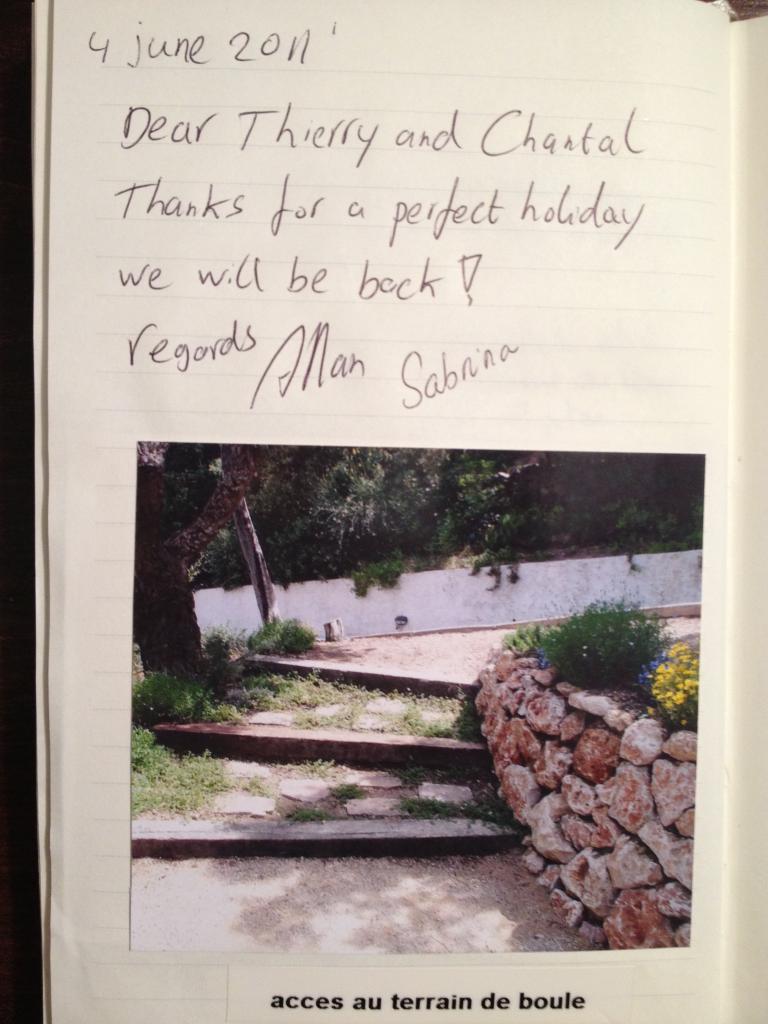 4 june 2011
Dear Thierry and Chantal
Thanks for a perfect holiday
we will be back!
regards Allan Sabrina
acces au terrain de boule